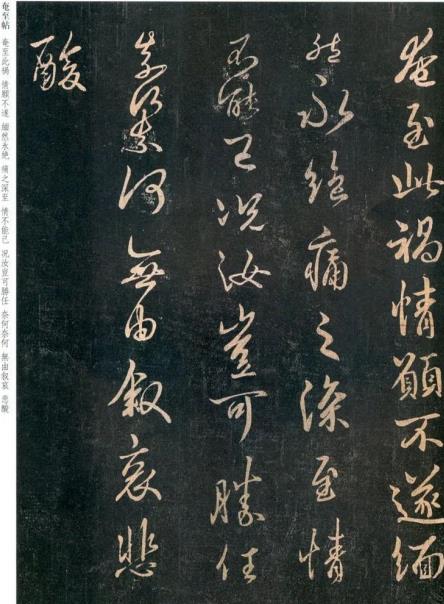 奄至此禍情願不遂緬
然永絶痛之深至情
不能已況汝豈可勝任
奈何奈何無由叙哀悲
酸
奄至帖 奄至此禍 情願不遂 緬然永絶 痛之深至 情不能已 況汝豈可勝任 奈何奈何 無由叙哀 悲酸